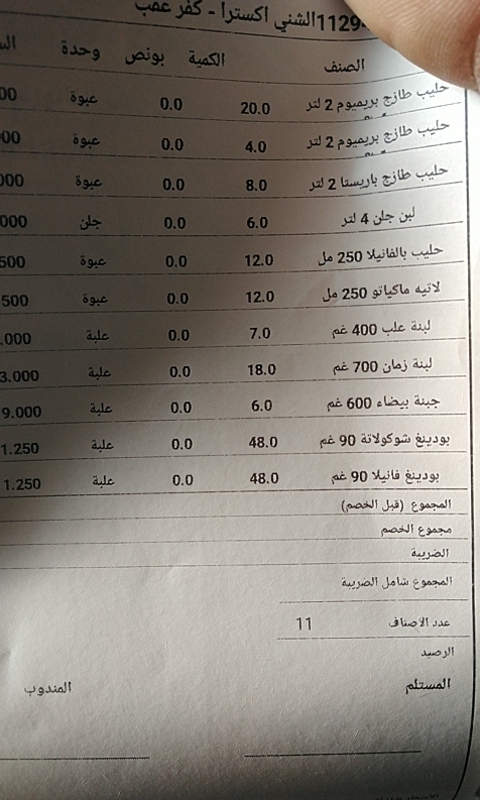 1129 الشني اكسترا - كفر عقب
الصنف الكمية بونص وحدة
حليب طازج بريميوم 2 لتر 20.0 0.0 عبوة
حليب طازج بريميوم 2 لتر 4.0 0.0 عبوة
حليب طازج باريستا 2 لتر 8.0 0.0 عبوة
لبن جلن 4 لتر 6.0 0.0 جلن
حليب بالفانيلا 250 مل 12.0 0.0 عبوة
لاتيه ماكياتو 250 مل 12.0 0.0 عبوة
لبنة علب 400 غم 7.0 0.0 علبة
لبنة زمان 700 غم 18.0 0.0 علبة 3.000
جبنة بيضاء 600 غم 6.0 0.0 علبة 9.000
بودينغ شوكولاتة 90 غم 48.0 0.0 علبة 1.250
بودينغ فانيلا 90 غم 48.0 0.0 علبة 1.250
المجموع (قبل الخصم)
مجموع الخصم
الضريبة
المجموع شامل الضريبة
عدد الاصناف 11
الرصيد
المستلم المندوب